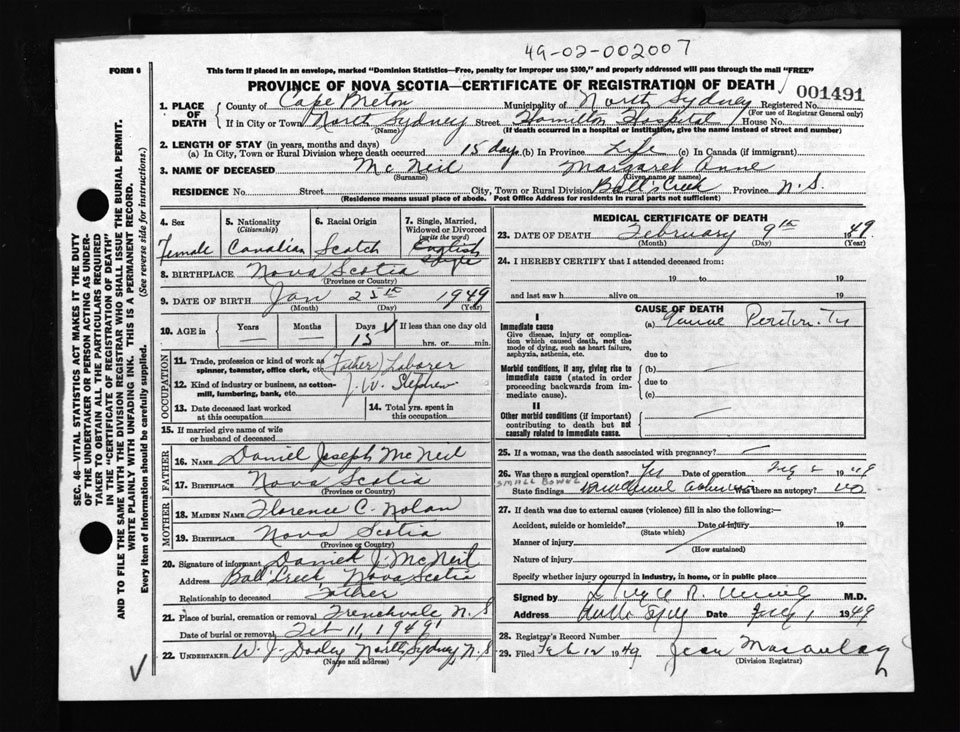 49-02-002007
FORM 6
This form if placed in an envelope, marked "Dominion Statistics—Free, penalty for improper use $300," and properly addressed will pass through the mail "FREE"
PROVINCE OF NOVA SCOTIA—CERTIFICATE OF REGISTRATION OF DEATH
001491
1. PLACE OF DEATH
County of Cape Breton Municipality of North Sydney Registered No.
(For use of Registrar General only)
If in City or Town North Sydney Street Hamilton Hospital House No.
(Name) (If death occurred in a hospital or institution, give the name instead of street and number)
2. LENGTH OF STAY (in years, months and days)
(a) In City, Town or Rural Division where death occurred 15 days (b) In Province Life (c) In Canada (if immigrant)
3. NAME OF DECEASED McNeil Margaret Anne
(Surname) (Given name or names)
RESIDENCE No. Street City, Town or Rural Division Ball's Creek Province N.S.
(Residence means usual place of abode. Post Office Address for residents in rural parts not sufficient)
4. Sex
Female
5. Nationality
(Citizenship)
Canadian
6. Racial Origin
Scotch
7. Single, Married, Widowed or Divorced
(write the word)
English
Single
8. BIRTHPLACE Nova Scotia
(Province or Country)
9. DATE OF BIRTH Jan 25th 1949
(Month) (Day) (Year)
10. AGE in
Years Months Days If less than one day old
— — 15 hrs. or min.
OCCUPATION
11. Trade, profession or kind of work as spinner, teamster, office clerk, etc. (Father) Laborer
12. Kind of industry or business, as cotton-mill, lumbering, bank, etc. J. W. Stephen
13. Date deceased last worked at this occupation
14. Total yrs. spent in this occupation
15. If married give name of wife or husband of deceased
FATHER
16. NAME Daniel Joseph McNeil
17. BIRTHPLACE Nova Scotia
(Province or Country)
MOTHER
18. MAIDEN NAME Florence C. Nolan
19. BIRTHPLACE Nova Scotia
(Province or Country)
20. Signature of informant Daniel J. McNeil
Address Ball's Creek Nova Scotia
Relationship to deceased Father
21. Place of burial, cremation or removal Frenchvale N.S
Date of burial or removal Feb 11, 1949
22. UNDERTAKER W. J. Dooley North Sydney, N.S
(Name and address)
MEDICAL CERTIFICATE OF DEATH
23. DATE OF DEATH February 9th 49
(Month) (Day) (Year)
24. I HEREBY CERTIFY that I attended deceased from:
19 to 19
and last saw h alive on 19
CAUSE OF DEATH
I
Immediate cause
Give disease, injury or complication which caused death, not the mode of dying, such as heart failure, asphyxia, asthenia, etc.
(a) Peritonitis
due to
Morbid conditions, if any, giving rise to immediate cause (stated in order proceeding backwards from immediate cause).
(b)
due to
(c)
II
Other morbid conditions (if important) contributing to death but not causally related to immediate cause.
25. If a woman, was the death associated with pregnancy?
26. Was there a surgical operation? Yes Date of operation 1949
SMALL BOWEL
State findings Was there an autopsy? No
27. If death was due to external causes (violence) fill in also the following:—
Accident, suicide or homicide? Date of injury 19
(State which)
Manner of injury
(How sustained)
Nature of injury
Specify whether injury occurred in industry, in home, or in public place
Signed by M.D.
Address Date 1949
28. Registrar's Record Number
29. Filed Feb 12 1949 Jean Macaulay
(Division Registrar)
SEC. 46—VITAL STATISTICS ACT MAKES IT THE DUTY
OF THE UNDERTAKER OR PERSON ACTING AS UNDER-
TAKER TO OBTAIN ALL THE PARTICULARS REQUIRED
IN THE "CERTIFICATE OF REGISTRATION OF DEATH"
AND TO FILE THE SAME WITH THE DIVISION REGISTRAR WHO SHALL ISSUE THE BURIAL PERMIT.
WRITE PLAINLY WITH UNFADING INK. THIS IS A PERMANENT RECORD.
Every item of Information should be carefully supplied. (See reverse side for instructions.)